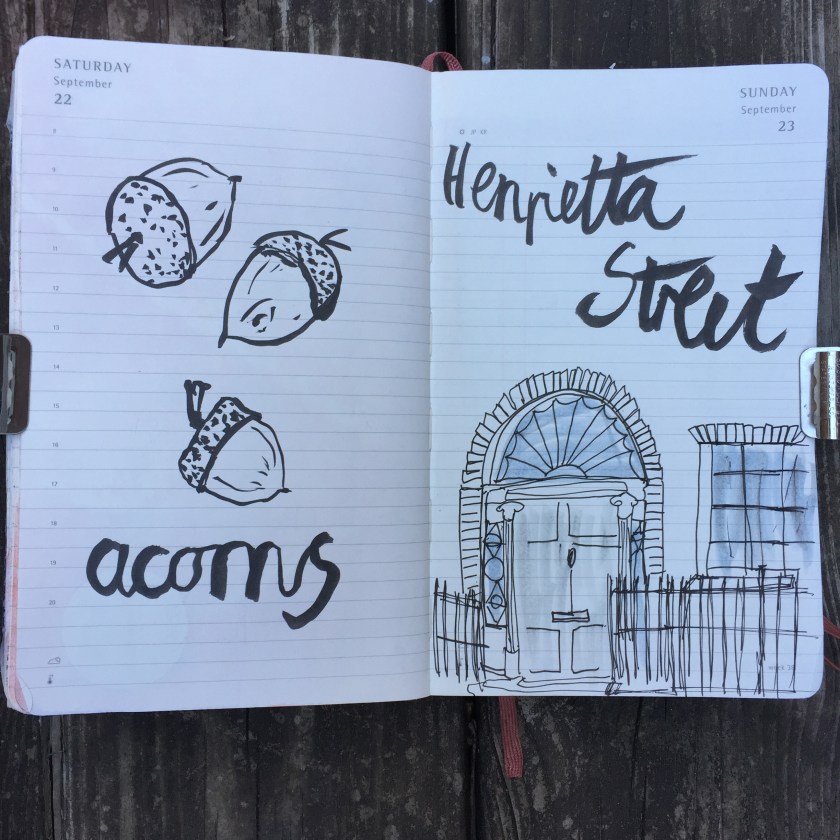 SATURDAY
September
22
8
9
10
11
12
13
14
15
16
17
18
19
20
acorns
SUNDAY
September
23
Henrietta
Street